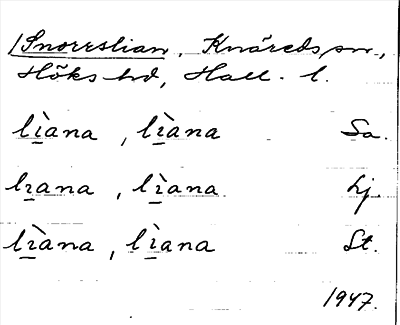 Snorrslian, Knäreds sn.,
Höks hd, Hall. l.
lìana, lìana Sa.
lıana, lìana Lj.
lìana, lìana St.
1947.